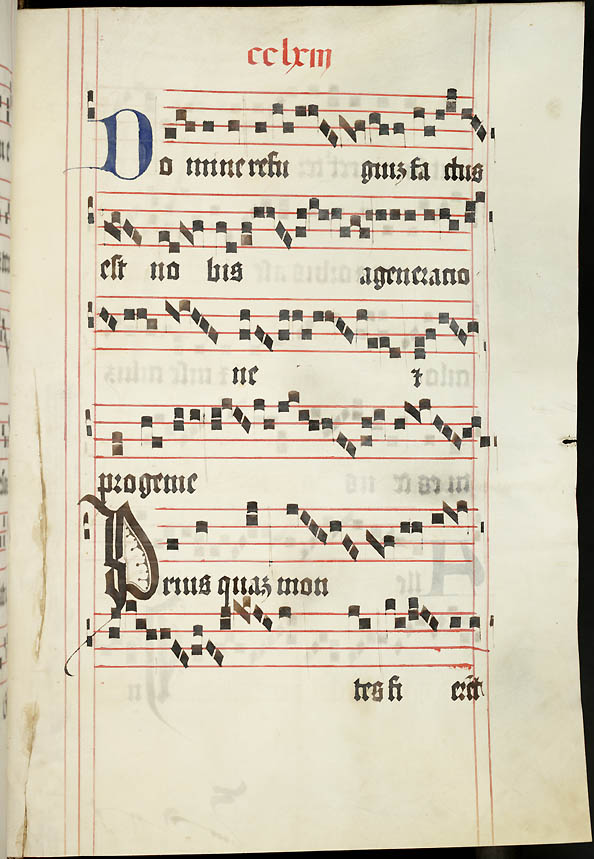 cclxiii
Domine refugiuʒ factus
est nobis a generacio
ne ⁊
progenie
Prius quaʒ mon
tes fierēt